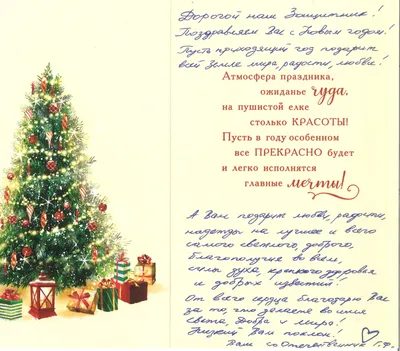 Дорогой наш Защитник!
Поздравляем Вас с Новым годом!
Пусть приходящий год подарит
всей Земле мира, радости, любви!
Атмосфера праздника,
ожиданье чуда.
на пушистой елке
столько КРАСОТЫ!
Пусть в году особенном
все ПРЕКРАСНО будет
и легко исполнятся
главные мечты!
А Вам подарит любви, радости,
надежды на лучшее и всего
самого светлого, доброго,
благополучия во всём,
силы духа, крепкого здоровья
и добрых известий!
От всего сердца благодарю Вас
за то, что делаете во имя
света, Добра и мира!
Низкий Вам поклон!
Вам со